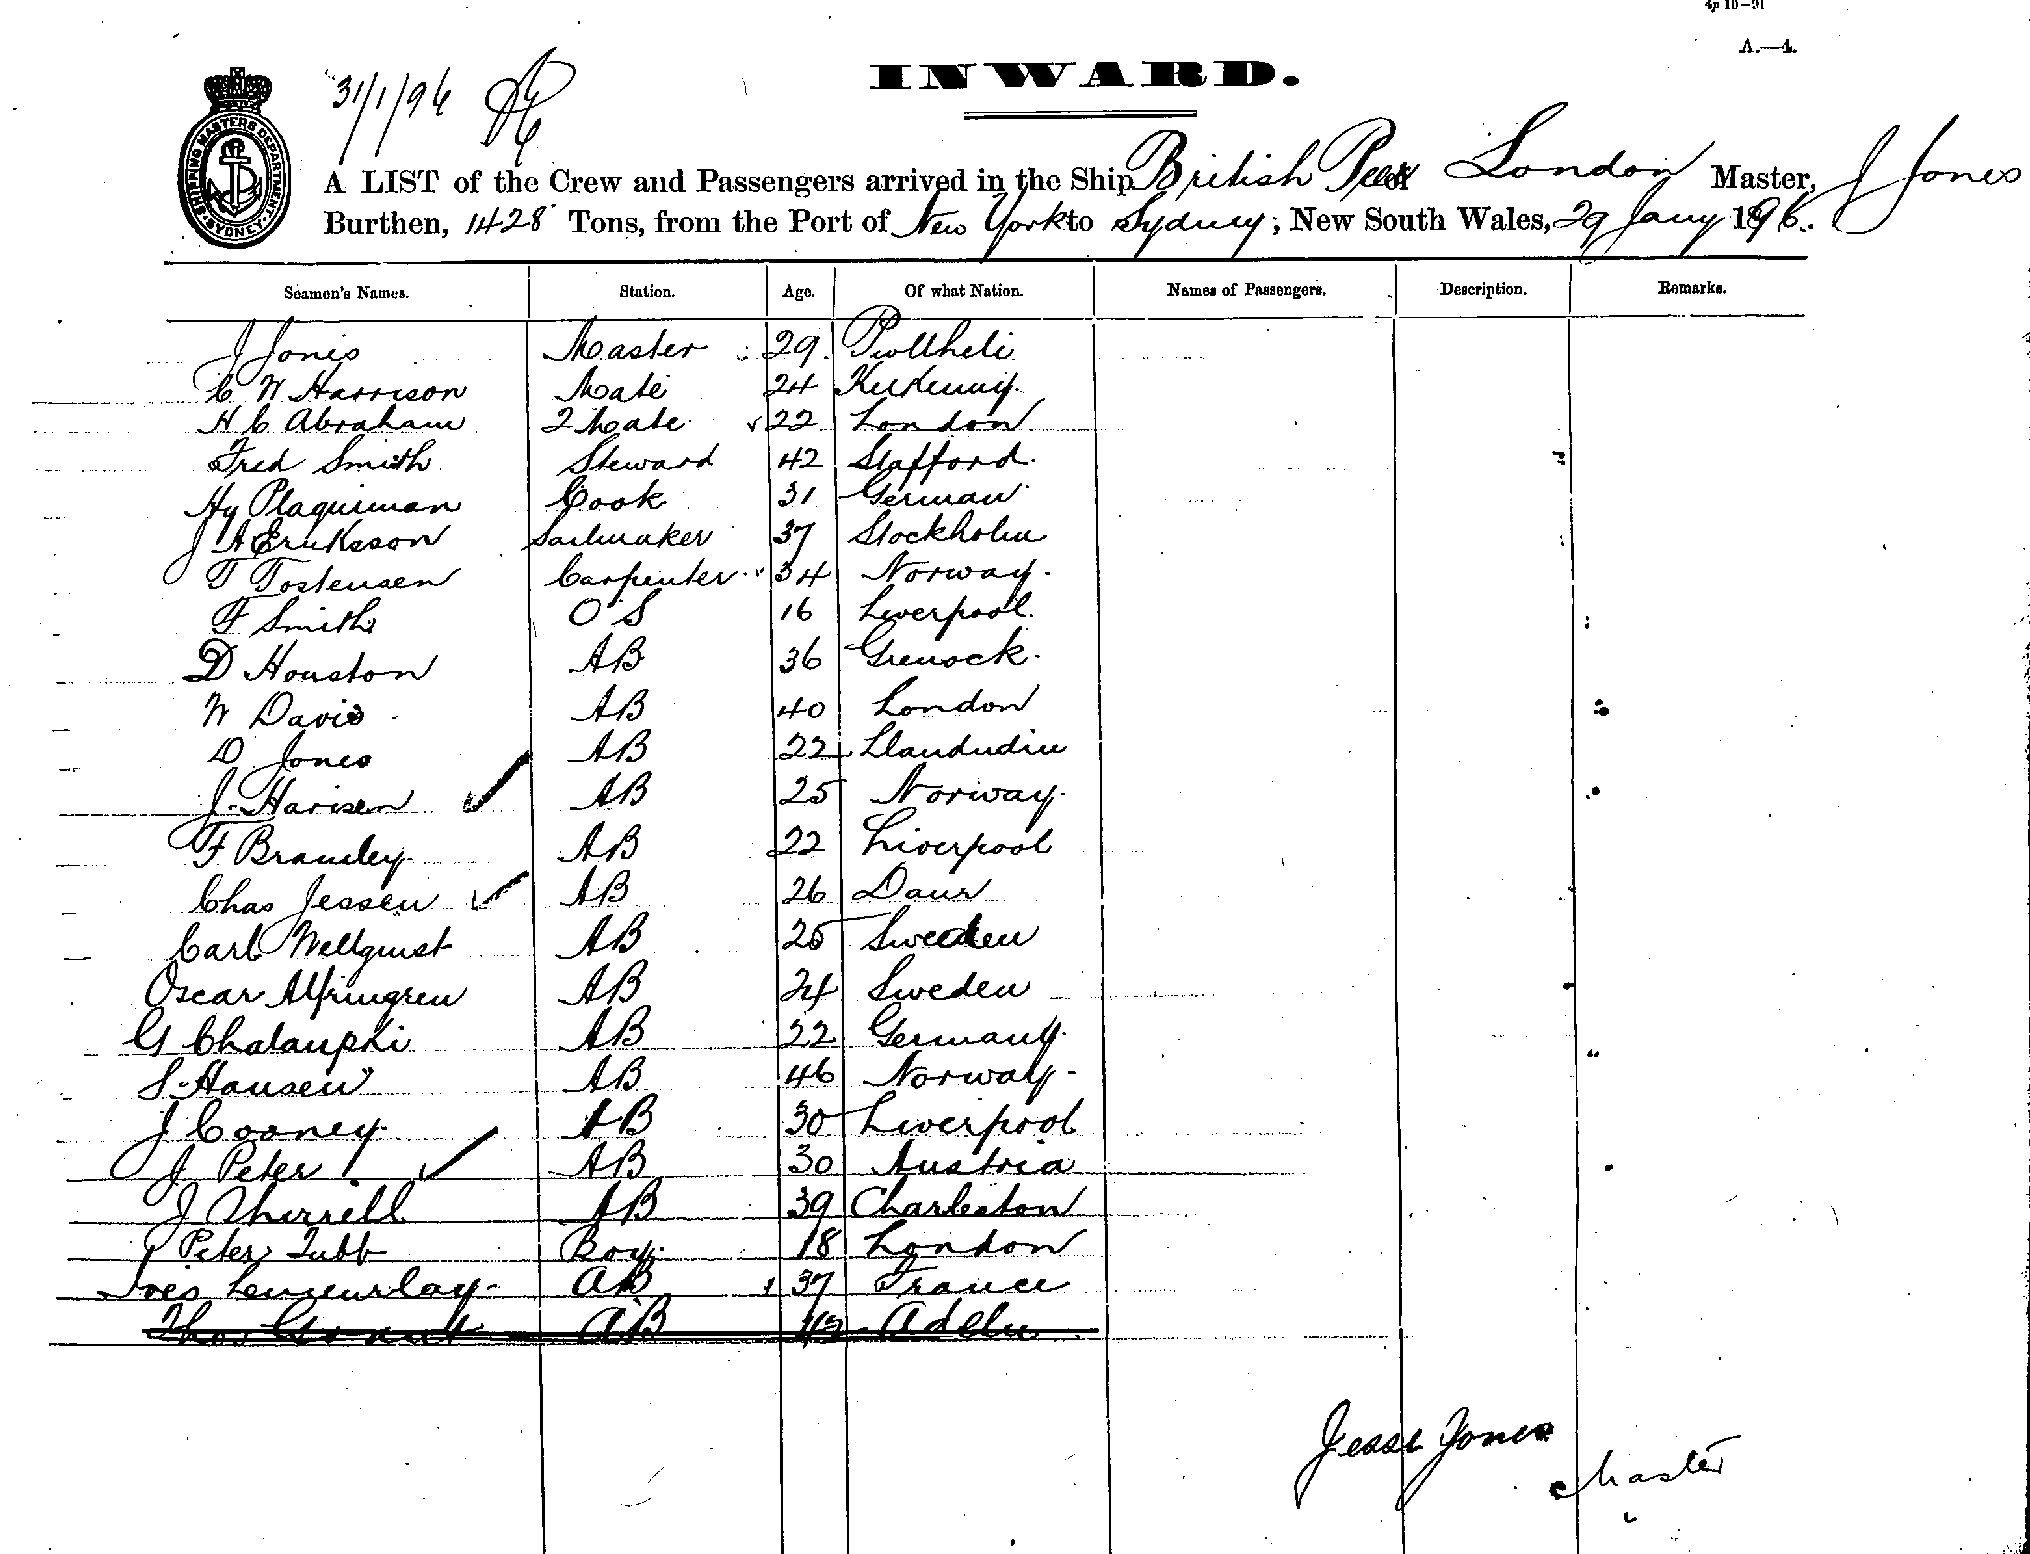 4p 10–91
A.—4.
INWARD.
31/1/96
SHIPPING MASTERS DEPARTMENT SYDNEY
A LIST of the Crew and Passengers arrived in the Ship British Peer of London Master, J Jones
Burthen, 1428 Tons, from the Port of New York to Sydney, New South Wales, 29 Jany 1896.
Seamen's Names. Station. Age. Of what Nation. Names of Passengers. Description. Remarks.
J Jones Master 29 Pwllheli
C W Harrison Mate 24 Kilkenny
H C Abraham 2 Mate 22 London
Fred Smith Steward 42 Stafford
Hy Plaguiman Cook 31 German
J A Eriksson Sailmaker 37 Stockholm
T Tostensen Carpenter 34 Norway
F Smith O S 16 Liverpool
D Houston AB 36 Grenock
W Davis AB 40 London
D Jones AB 22 Llandudin
J Harisen AB 25 Norway
F Bramley AB 22 Liverpool
Chas Jessen AB 26 Dane
Carl Wellquist AB 25 Sweden
Oscar AB 24 Sweden
G Chalaupki AB 22 Germany
S Hansen AB 46 Norway
J Cooney AB 30 Liverpool
J Peter AB 30 Austria
J Thirrell AB 39 Charleston
Peter Tubb Boy 18 London
AB 37 France
Thos Grant AB
Jesse Jones
Master